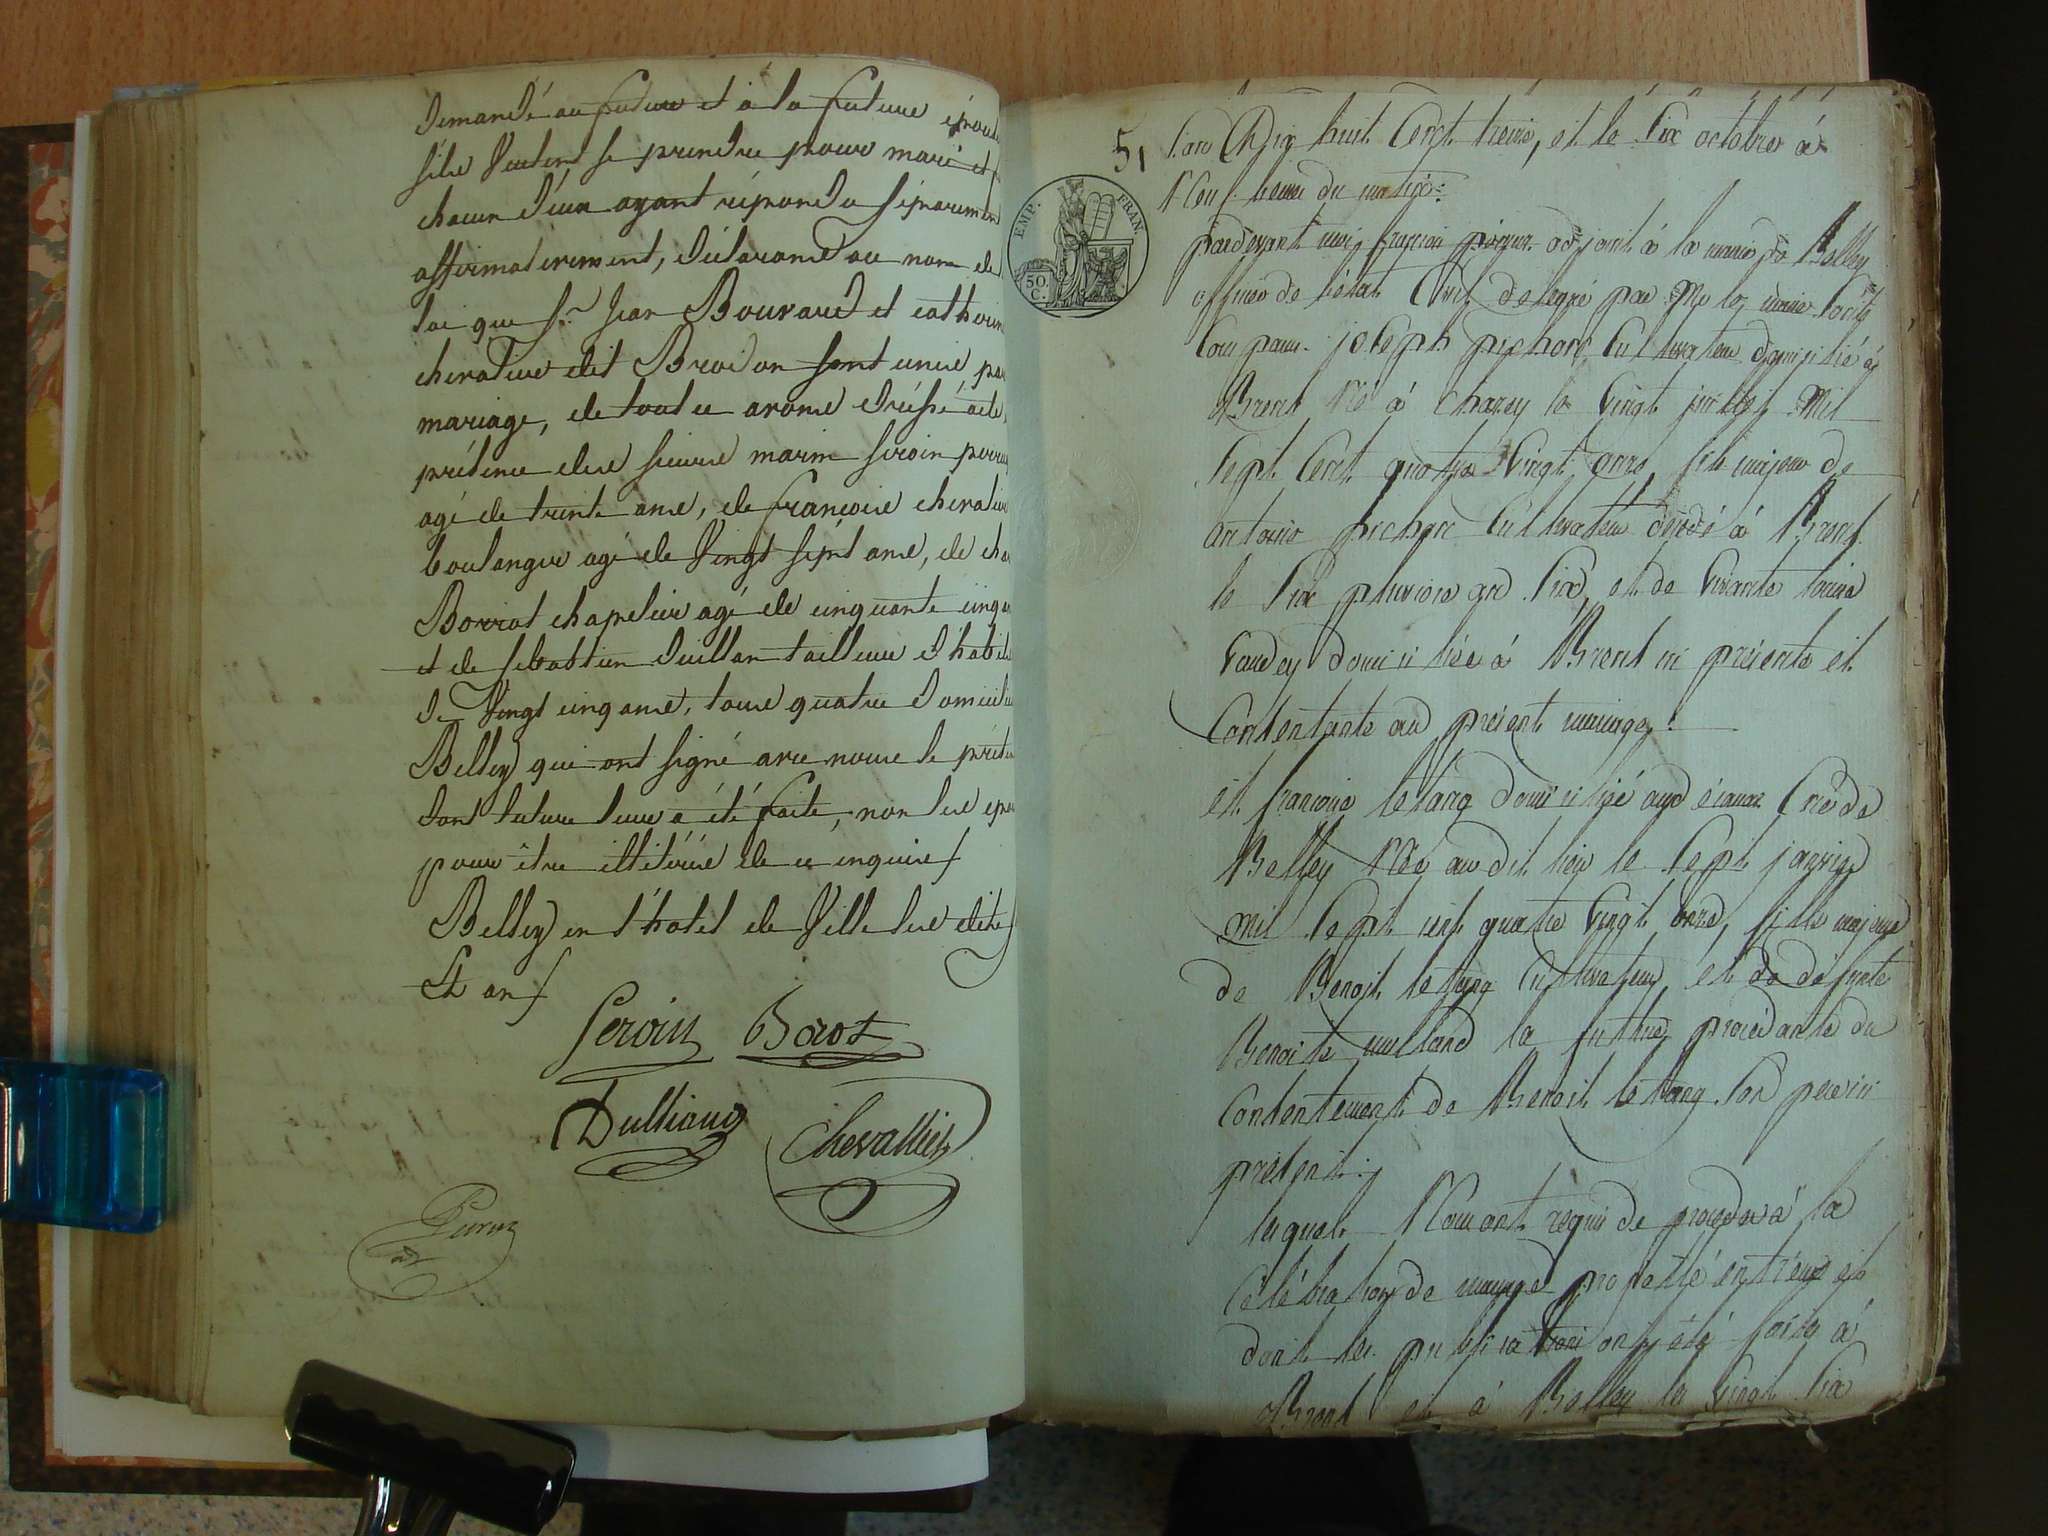 demandé au future et à la future épouse
s'ile veulent se prendre pour mari et
chacun d'eux ayant répondu séparement
affirmativement, déclarons au nom de
loi que Sr Jean Bouvard et catherine
chevalier dit Broidon sont unis par
mariage, de tout ce avons dréssé acte,
présence des sieurs marin servin perruq
agé de trente ans, de françois chevalier
boulanger agé de vingt sépt ans, de cha
Borrot chapelier agé de cinquante cinq a
et de sebastien Duillan tailleur d'habits
de vingt cinq ans, tous quatre domicilié
Belley qui ont signé avec nous le présen
dont lecture leur a été faite, non les epou
pour être illitéré de ce enquis
Belley en l'hotel de ville les dits
et an
Servin Borot
Dulliand Chevallier
51
EMP. FRAN.
50.
C.
L'an Dix huit Cent treize, et le Six octobre à
Neuf heures du matin:
pardevant moi françois adjoint à la mairie de Belley
officier de l'état Civil délégué par Mr le maire
Compam. joseph pichon Cultivateur domicilié à
Brent Né à Chazey le vingt juillet Mil
Sept Cent quatre Vingt onze, fils majeur de
antoine pichon Cultivateur décédé à Brent
le Six pluviose an Six, et de vivante
domiciliée à Brent ici présente et
Consentante au présent mariage:
et françoise létang domiciliée aux écassaz Cne de
Belley Née au dit lieu le Sept janvier
mil Sept cent quatre Vingt onze, fille majeure
de Benoit létang Cultivateur, et de défunte
Benoite la future procédante du
Consentement de Benoit létang Son père ici
présent:
lesquels Nous ont requis de procéder à la
Célébration de mariage projetté entr'eux et
dont les publications ont été faites à
Brent et à Belley le vingt Six